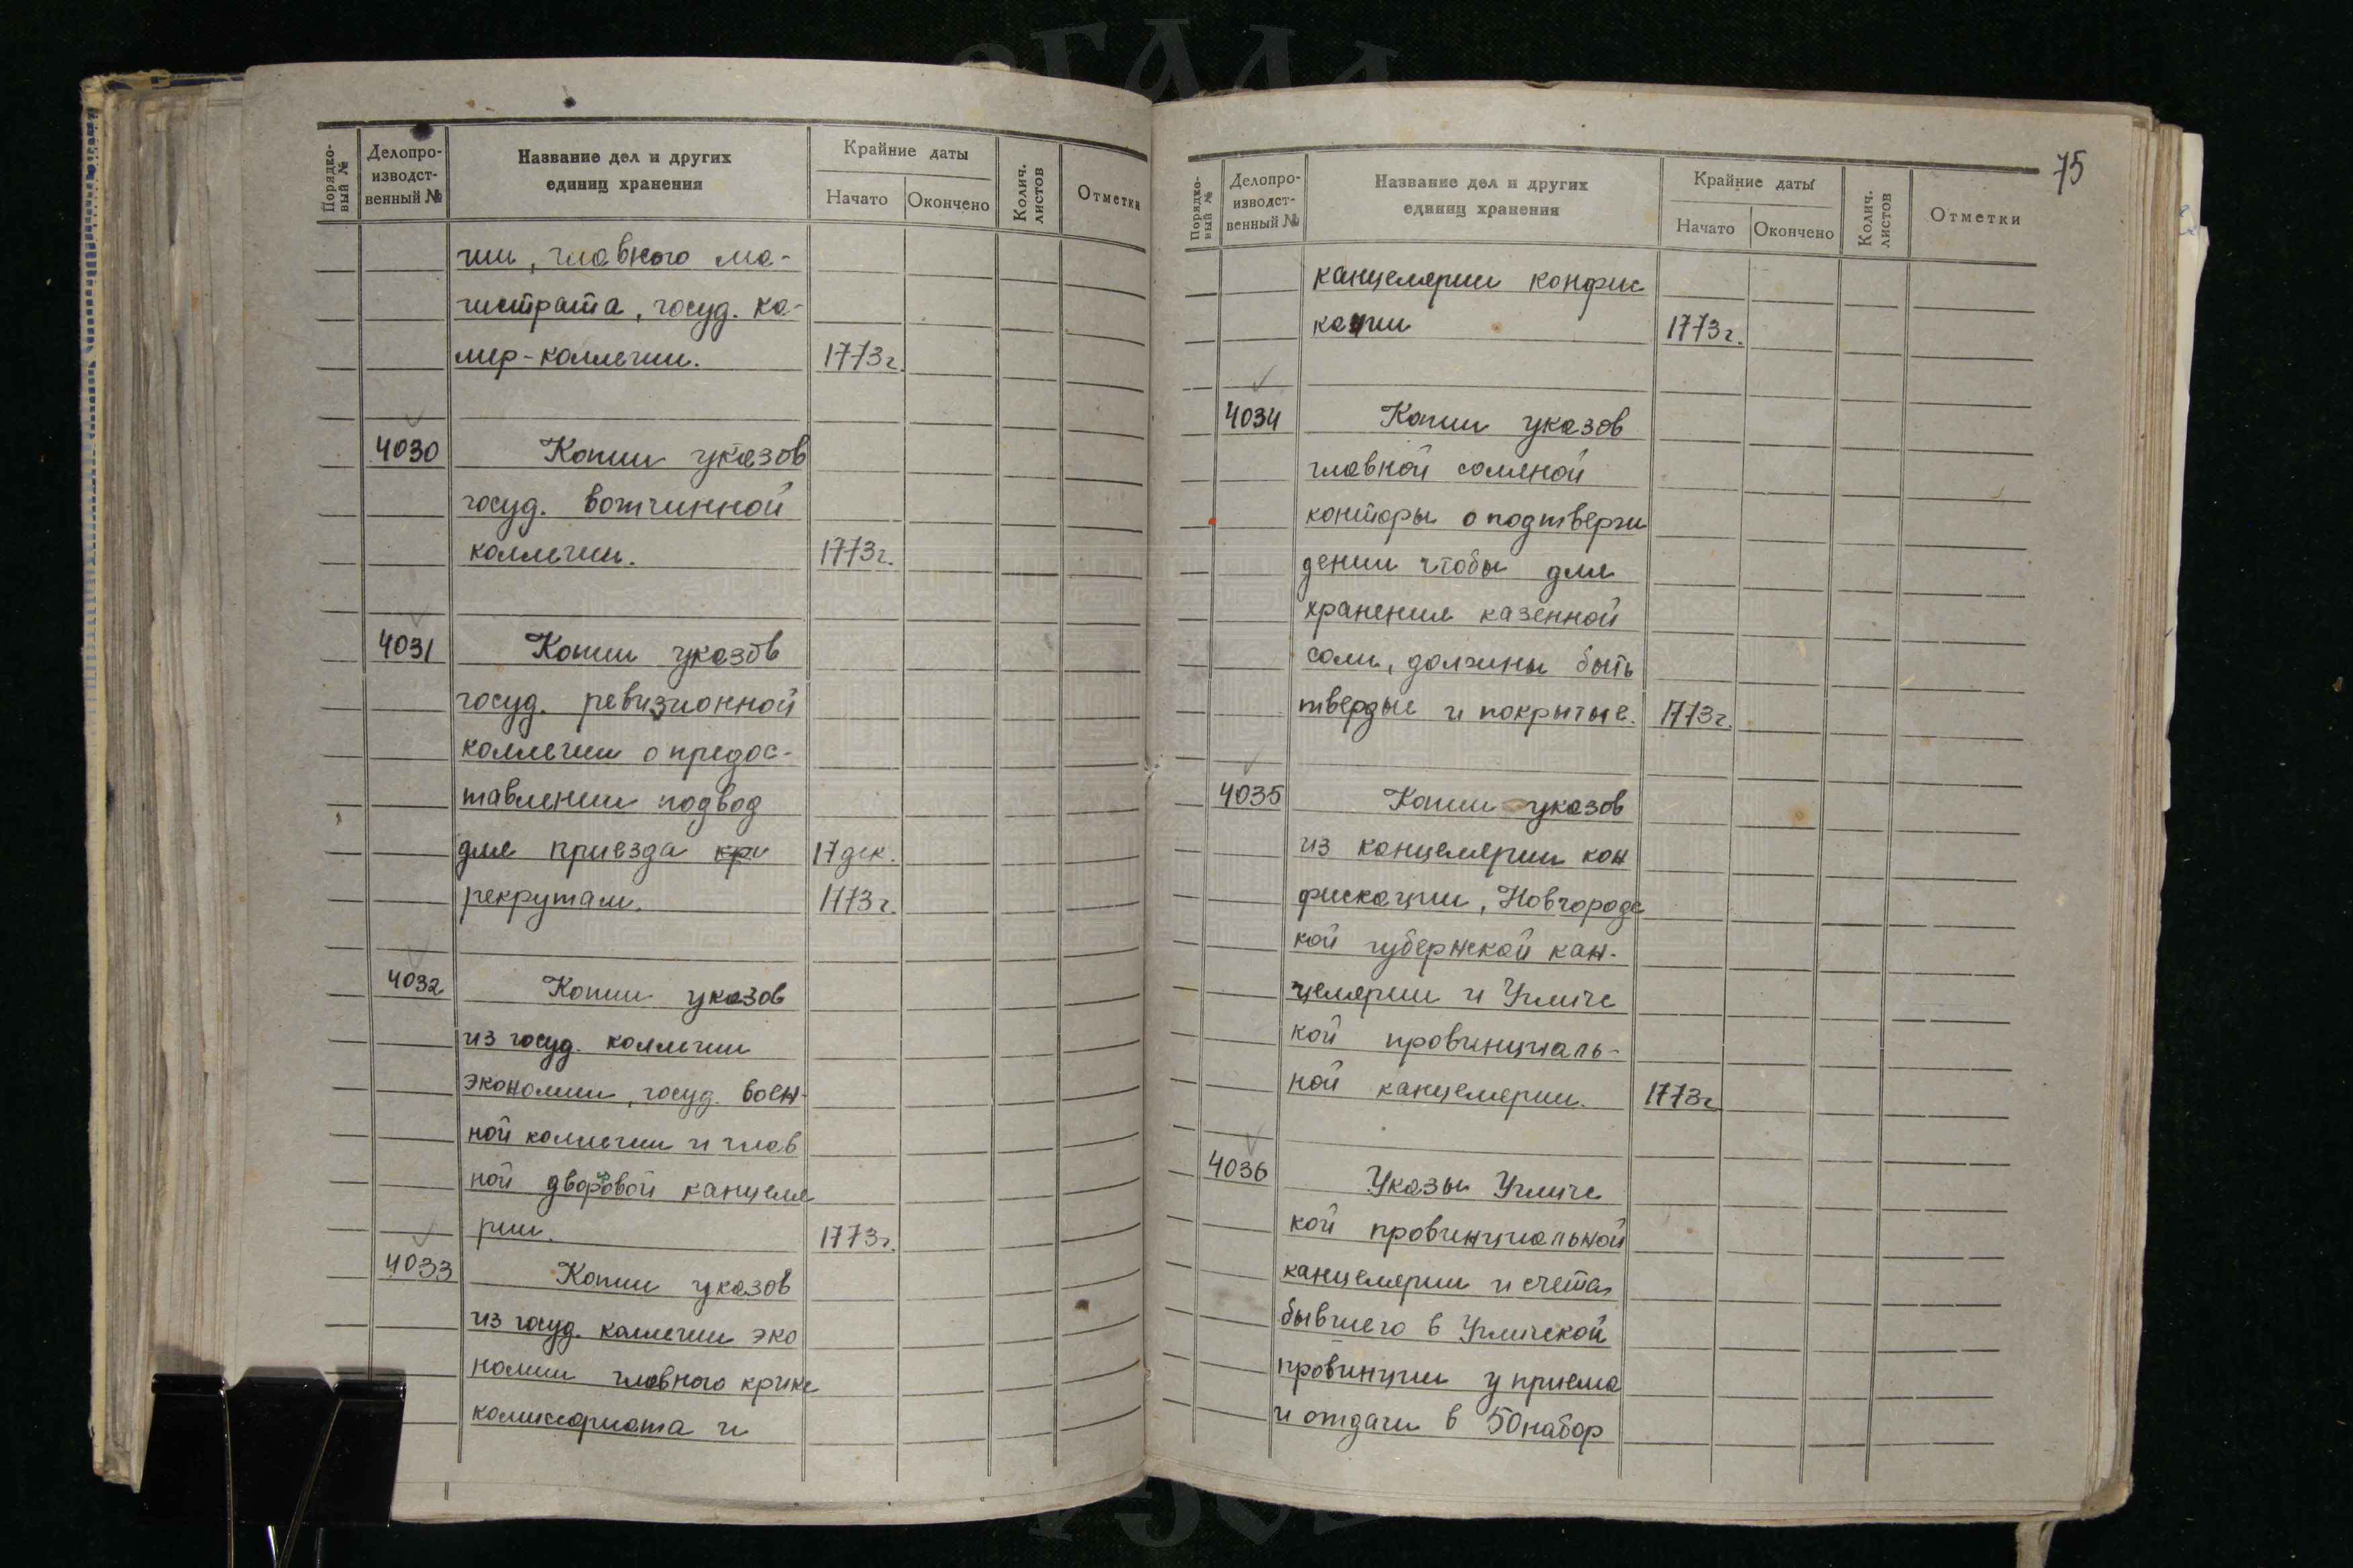 Порядко-
вый №
Делопро-
изводст-
венный №
Название дел и других
единиц хранения
Крайние даты
Начато
Окончено
Колич.
листов
Отметки
гии, главного ма-
гистрата, госуд. ка-
мер-коллегии. 1773г.
4030 Копии указов
госуд. вотчинной
коллегии. 1773г.
4031 Копии указов
госуд. ревизионной
коллегии о предос-
тавлении подвод
для приезда кри 17 дек.
рекрутам. 1773г.
4032 Копии указов
из госуд. коллегии
экономии, госуд. воен-
ной коллегии и глав
ной дворовой канцеля
рии. 1773г.
4033 Копии указов
из госуд. коллегии эко
номии главного крикс
комиссариата и
75
Порядко-
вый №
Делопро-
изводст-
венный №
Название дел и других
единиц хранения
Крайние даты
Начато
Окончено
Колич.
листов
Отметки
канцелярии конфис
кации 1773г.
4034 Копии указов
главной соляной
конторы о подтверж
дении чтобы для
хранения казенной
соли, должны быть
твердые и покрытые. 1773г.
4035 Копии указов
из канцелярии кон
фискации, Новгородс
кой губернской кан-
целярии и Угличс
кой провинциаль-
ной канцелярии. 1773г
4036 Указы Угличс
кой провинциальной
канцелярии и счета
бывшего в Угличской
провинции у приема
и отдачи в 50 набор